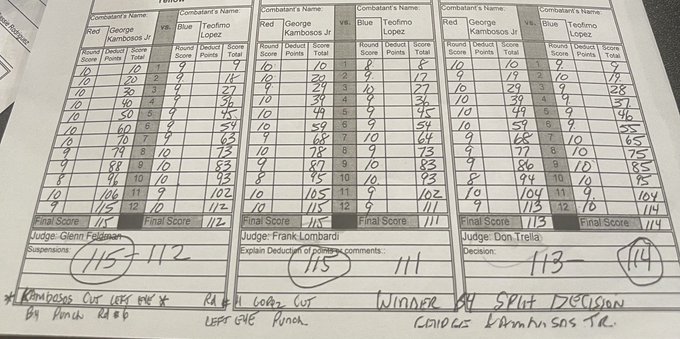 Combatant's Name: Combatant's Name: Combatant's Name: Combatant's Name: Combatant's Name: Combatant's Name:
Red George Kambosos Jr vs. Blue Teofimo Lopez Red George Kambosos Jr vs. Blue Teofimo Lopez Red George Kambosos Jr vs. Blue Teofimo Lopez
Round Score Deduct Points Score Total Round Score Deduct Points Score Total Round Score Deduct Points Score Total Round Score Deduct Points Score Total Round Score Deduct Points Score Total Round Score Deduct Points Score Total
10 10 1 9 9 10 10 1 8 8 10 10 1 9 9
10 20 2 9 18 10 20 2 9 17 9 19 2 10 19
10 30 3 9 27 9 29 3 10 27 10 29 3 9 28
10 40 4 9 36 10 39 4 9 36 10 39 4 9 37
10 50 5 9 45 10 49 5 9 45 10 49 5 9 46
10 60 6 9 54 10 59 6 9 54 10 59 6 9 55
10 70 7 9 63 9 68 7 10 64 9 68 7 10 65
9 79 8 10 73 10 78 8 9 73 9 77 8 10 75
9 88 9 10 83 9 87 9 10 83 9 86 9 10 85
8 96 10 10 93 8 95 10 10 93 8 94 10 10 95
10 106 11 9 102 10 105 11 9 102 10 104 11 9 104
9 115 12 10 112 10 115 12 9 111 9 113 12 10 114
Final Score 115 Final Score 112 Final Score 115 Final Score 111 Final Score 113 Final Score 114
Judge: Glenn Feldman Judge: Frank Lombardi Judge: Don Trella
Suspensions: Explain Deduction of points or comments: Decision:
115 - 112 115 111 113 - 114
* Kambosos CUT LEFT EYE * Rd # 11 LOPEZ CUT WINNER BY SPLIT DECISION
By Punch Rd #6 LEFT EYE Punch GEORGE KAMBOSOS JR.